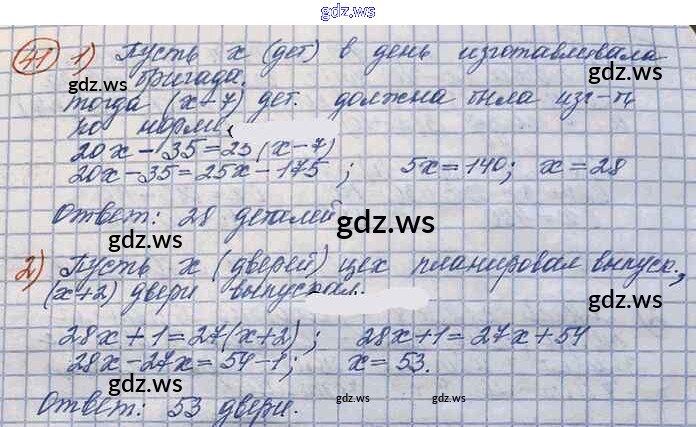 gdz.ws
41 1) Пусть х (дет) в день изготавливала
gdz.ws бригада. gdz.ws
тогда (х+7) дет. должна была изг-ть
по норме.
20х - 35 = 25 (х - 7)
20х - 35 = 25х - 175 ; 5х = 140; х = 28
Ответ: 28 деталей
gdz.ws gdz.ws
2) Пусть х (дверей) цех планировал выпуск.,
(х+2) двери выпускал. gdz.ws
28х + 1 = 27(х+2) ; 28х+1 = 27х + 54
28х - 27х = 54 - 1 ; х = 53.
gdz.ws
Ответ: 53 двери. gdz.ws gdz.ws
gdz.ws